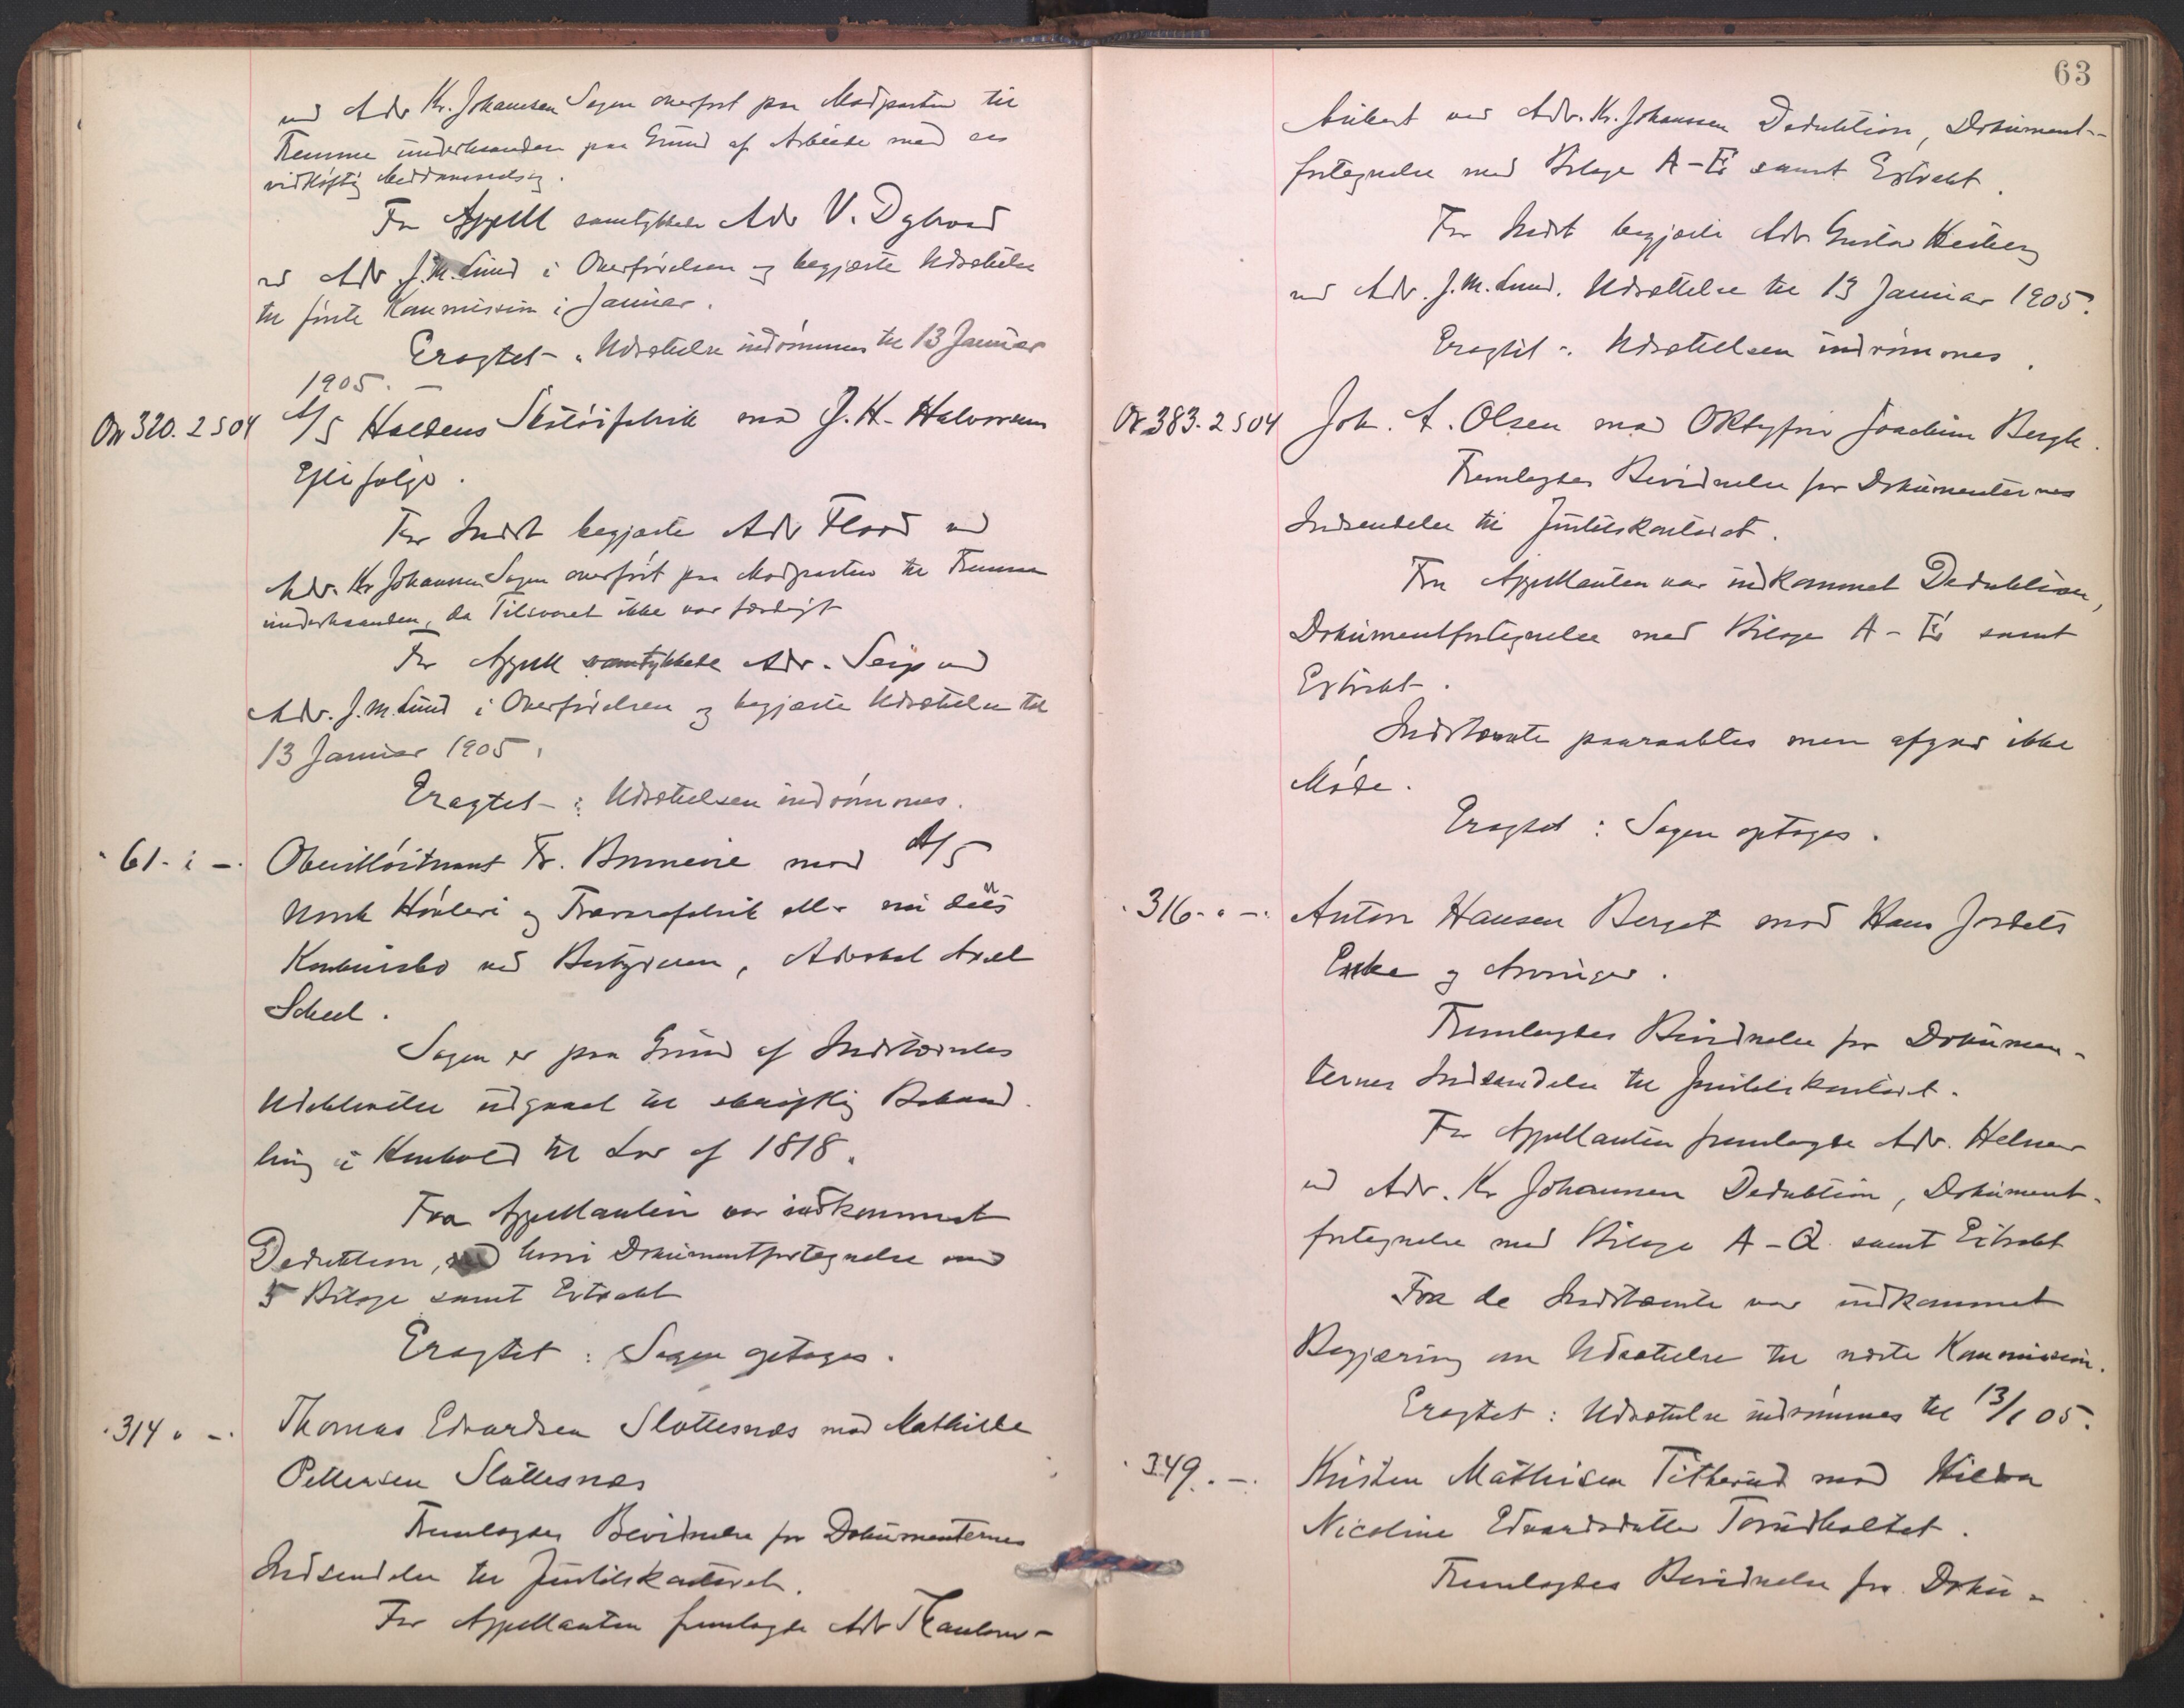 ved Adv Kr. Johanssen Sagen overført paa Modparten til
Fremme underhaanden paa Grund af Arbeide med en
vidtløftig Meddomssag.
For Appell samtykkede Adv V. Dybwad
ved Adv J.M. Lund i Overførelsen og begjærte Udsættelse
til første Kommission i Januar.
Eragtet - : Udsættelse indrømmes til 13 Januar
1905. -
On 320. 2 S 04 A/S Haldens Skotøifabrik mod J. H. Halvorsens
Efterfølger.
For Indst begjærte Adv Flood ved
Adv. Kr Johanssen Sagen overført paa Modparten til Fremme
underhaanden, da Tilsvaret ikke var færdigt
For Appell samtykkede Adv. Seip ved
Adv. J.M. Lund i Overførelsen og begjærte Udsættelse til
13 Januar 1905.
Eragtet - : Udsættelsen indrømmes.
" 61 - i - . Oberstløitnant Fr. mod A/S
Norsk Høvleri og Trævarefabrik nu dets
Konkursbo ved Bestyreren, Advokat Axel
Scheel.
Sagen er paa Grund af Indstævntes
Udeblivelse udgaaet til skriftlig Behand-
ling i Henhold til Lov af 1818.
Fra Appellanten var indkommet
Deduktion, Dokumentfortegnelse med
5 Bilage samt Extrakt
Eragtet : Sagen optages.
" 314 " - . Thomas Edvardsen Slottesnæs mod Mathilde
Pettersen Slottesnæs
Fremlagdes Bevidnelse for Dokumenternes
Indsendelse til Justitskontoret.
For Appellanten fremlagde Adv Thaulow-
63
Aubert ved Adv. Kr. Johanssen Deduktion, Dokument-
fortegnelse med Bilage A - E samt Extrakt.
For Indst begjærte Adv Gustav Heiberg
ved Adv. J.M. Lund. Udsættelse til 13 Januar 1905.
Eragtet - : Udsættelsen indrømmes.
On 383. 2 S 04 Joh. A. Olsen mod Joachim Bergh.
Fremlagdes Bevidnelse for Dokumenternes
Indsendelse til Justitskontoret.
Fra Appellanten var indkommet Deduktion,
Dokumentfortegnelse med Bilage A - E samt
Extrakt.
Indstævnte paaraabtes men afgav ikke
Møde.
Eragtet : Sagen optages.
" 316 - " - . Anton Hansen Berget mod Hans Jordets
Enke og Arvinger.
Fremlagdes Bevidnelse for Dokumen-
ternes Indsendelse til Justitskontoret.
For Appellanten fremlagde Adv. Helmer
ved Adv. Kr Johanssen Deduktion, Dokument-
fortegnelse med Bilage A - Q samt Extrakt
Fra de Indstævnte var indkommet
Begjæring om Udsættelse til næste Kommission.
Eragtet : Udsættelse indrømmes til 13/1 05.
" 349. - . Kristen Mathisen Titherud mod Hilda
Nicoline Edvardsdatter Torudholtet.
Fremlagdes Bevidnelse for Doku-